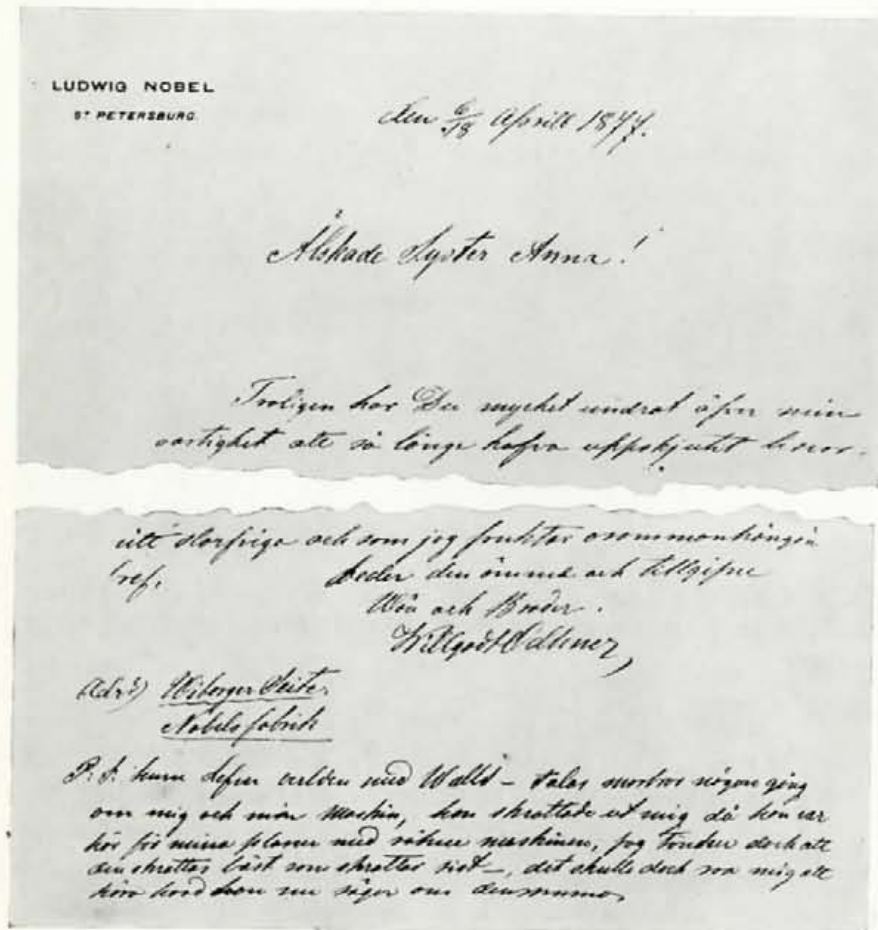 LUDWIG NOBEL
ST PETERSBURG.
den 6/18 Aprill 1877.
Älskade Syster Anna!
Troligen har Du mycket undrat öfver min
att så länge hafva uppskjutit
ditt slarfviga och som jag fruktar osammanhängande
bref. beder den ömme och tillgifne
Wän och Broder.
Willgodt Odhner,
Adrs) Wiborger Seite
Nobels fabrik
P.S. huru lefver verlden med - talar morbror någon gång
om mig och min Maskin, han skrattade ut mig då han var
här för mina planer med räkne maskinen, jag dock att
den skrattar bäst som skrattar sist -, det skulle dock roa mig att
höra hvad han nu säger om densamma